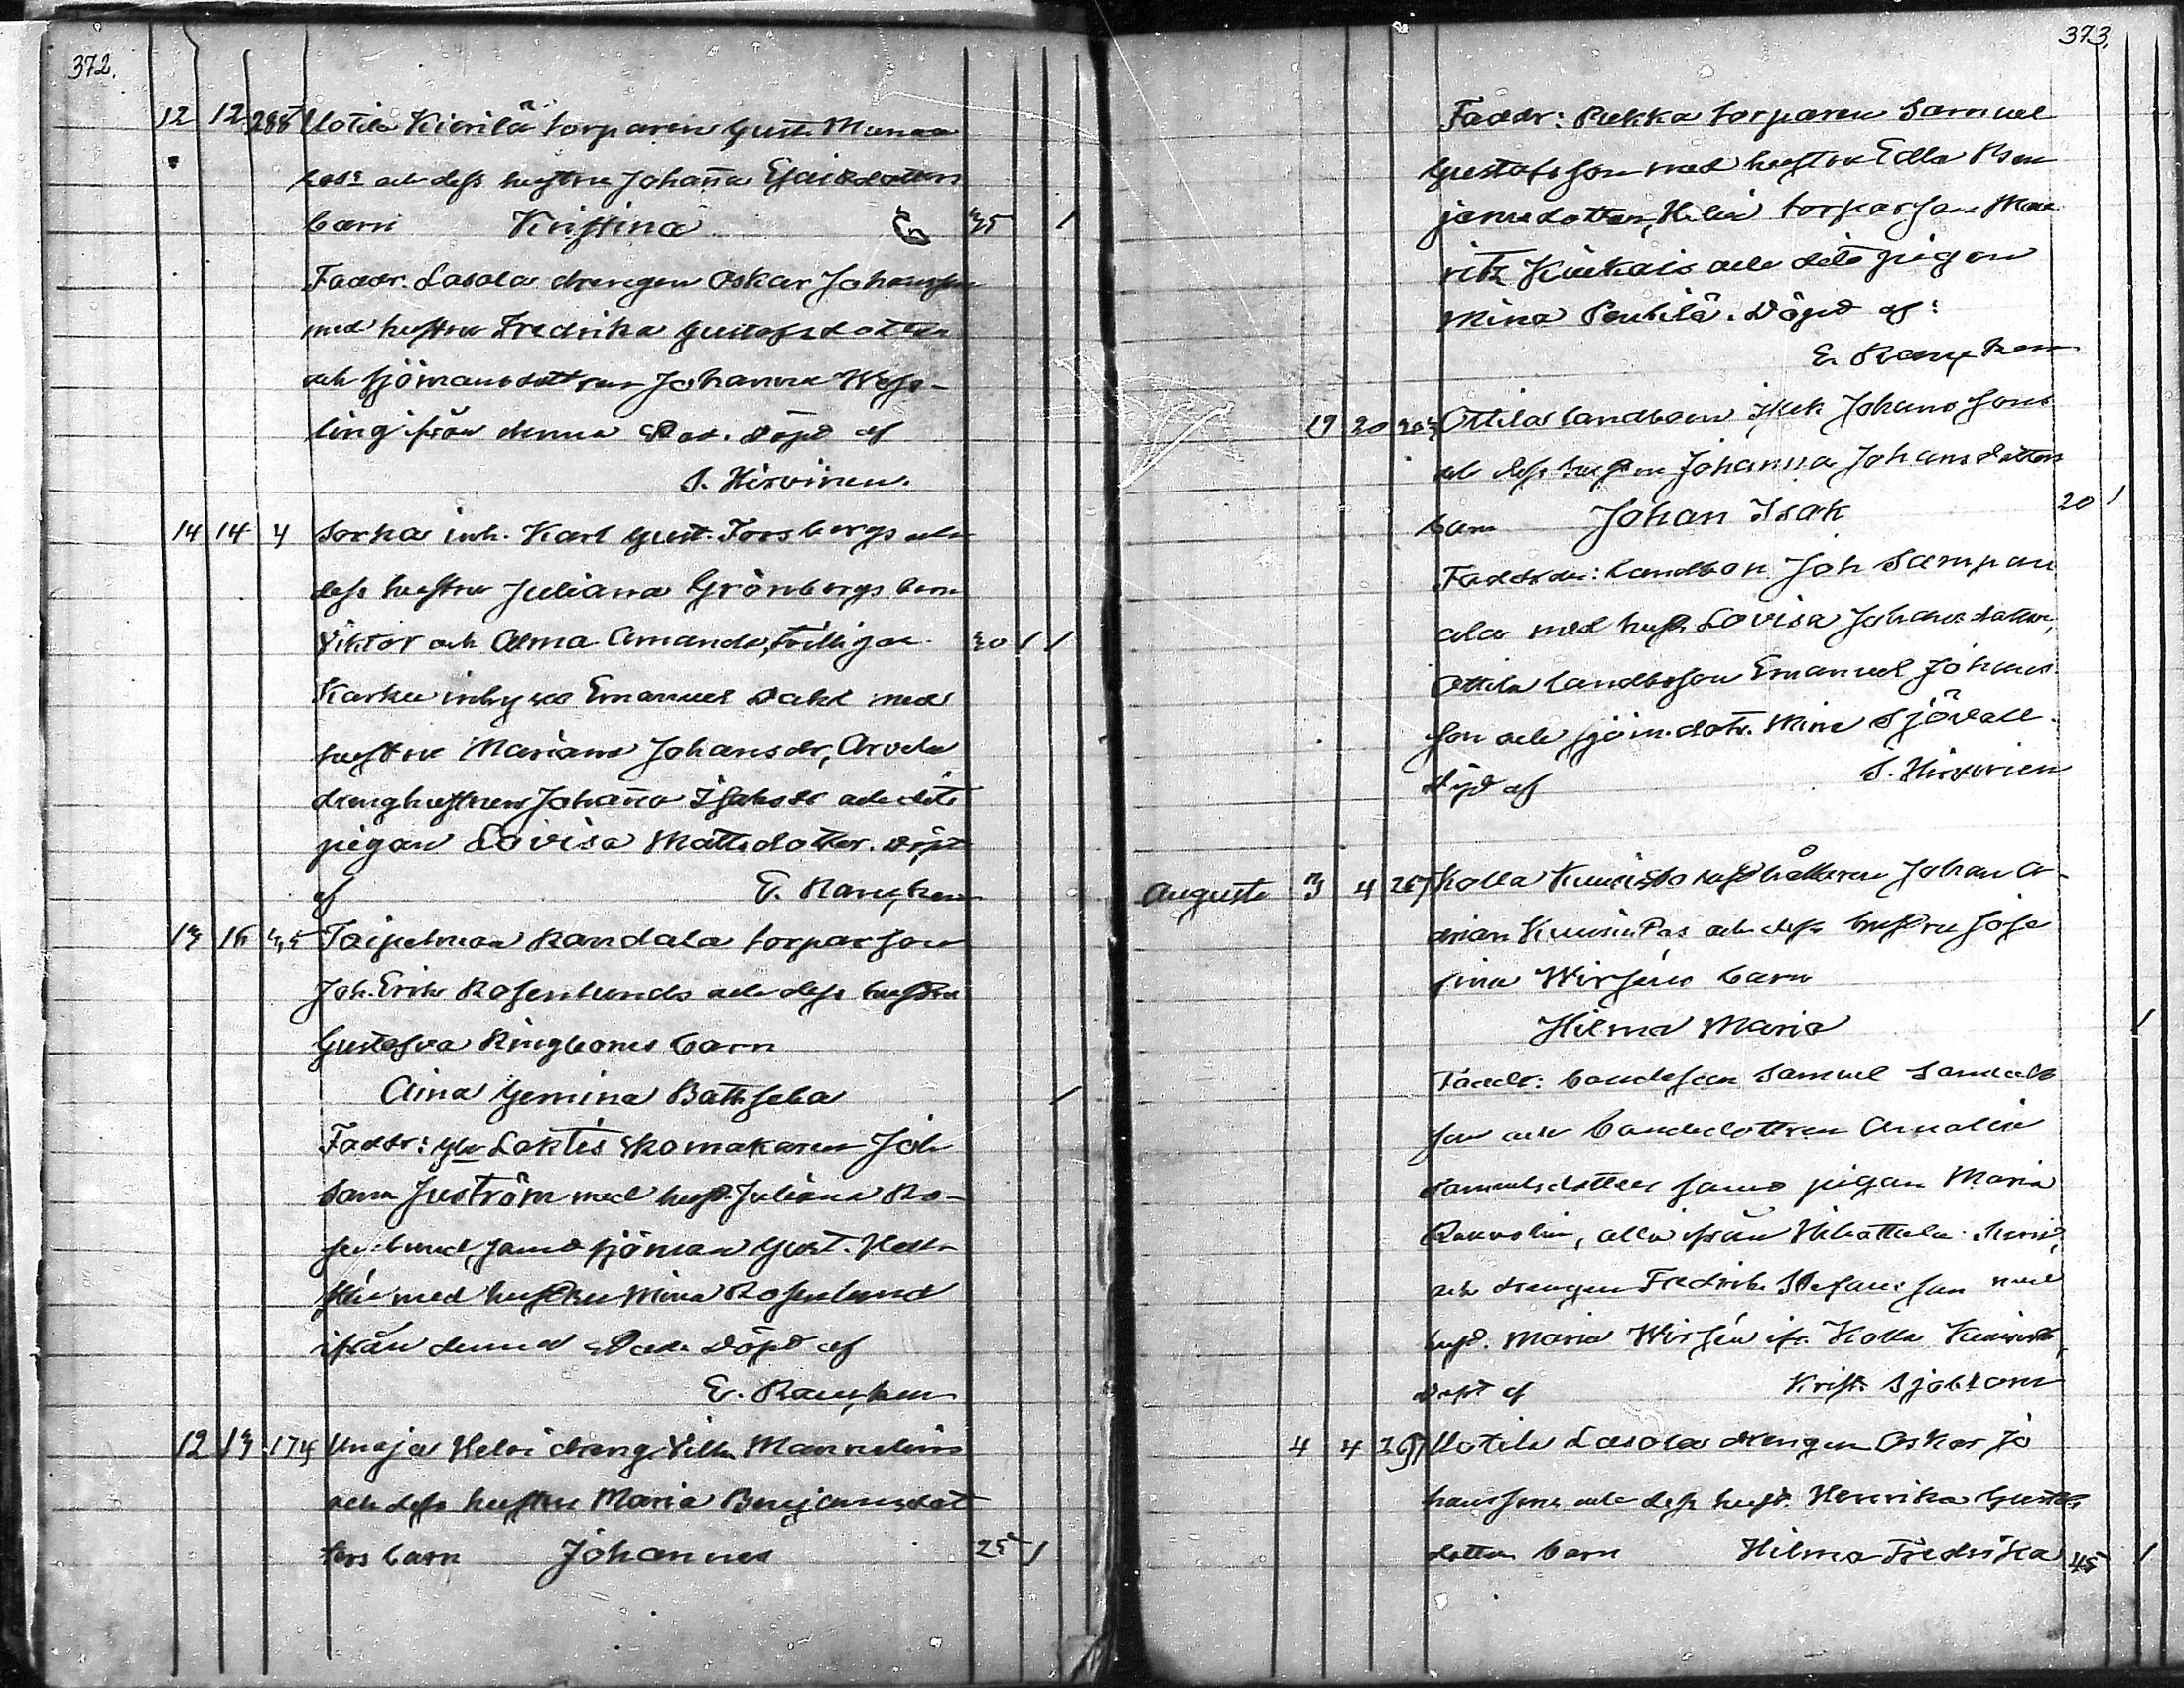 372.
12 12 288 Uotila Kierilä torparen Gust. Manna
och dess hustru Johanna Esaiædotters
barn Kristina 35 1
Faddr. Lasola drengen Oskar Johansson
med hustru Fredrika Gustafsdotter
och sjömansdottren Johanna Wess-
ling ifrån denna Död. döpt af
S. Hirvinen.
14 14 4 Sorka inh. Karl Gust. Forsbergs och
dess hustru Juliana Grönbergs barn
Viktor och Alma Amanda, tvillingar 30 1 1
Karku inhyses Emanuel Dahl med
hustru Mariana Johansdr, Arvela
drenghustrun Johanna Isaksdr och dito
pigan Lovisa Mattsdotter. döpt
af E. Rancken
13 16 35 Taipelmaa Randala torparson
Joh. Erik Rosenlunds och dess hustru
Gustafva Ringboms barn
Aina Gemina Bathseba 1
Faddr: Laktis skomakaren Joh
Sam Juström med hust. Juliana Ro-
senlund, samt sjöman Gust. Hell-
sten med hustru Mina Rosenlund
ifrån denna Döpt af
E. Rancken
12 13 174 Unaja Helvi dreng. Vilh. Mannelins
och dess hustru Maria Benjamsdot
ters barn Johannes 25 1
373.
Faddr: Pukka torparen Samuel
Gustafsson med hustru Edla Ben
jamsdotter, Heliä torparson Mau
ritz Kiukais och dito pigan
Mina Penttilä. Döpt af:
E. Rancken
19 20 203 Ottila landbon Isak Johanssons
och dess hustru Johanna Johansdotters
barn Johan Isak 20 1
Faddrar: Landbon Joh Sampan
ala med hust. Lovisa Johansdotter,
Ottila landbosson Emanuel Johans
son och sjöm.dotr. Mina Sjövall.
Döpt af S. Hirvinen
Augusti 3 4 267 Kolla Kuuisto husbållaren Johan A-
drian och dess hustru Jose
fina Wirséns barn
Hilma Maria 1
Faddr: bondeson Samuel Samuels
son och bondedottren Amalia
Samuelsdotter samt pigan Maria
alla ifrån
och drengen Fredrik Stefansson med
hust. Maria Wirsén ifr. Kolla
Döpt af Krist. Sjöblom
4 4 297 Uotila Lasola drengen Oskar Jo
hanssons och dess hust. Henrika Gustafs
dotters barn Hilma Fredrika 45 1